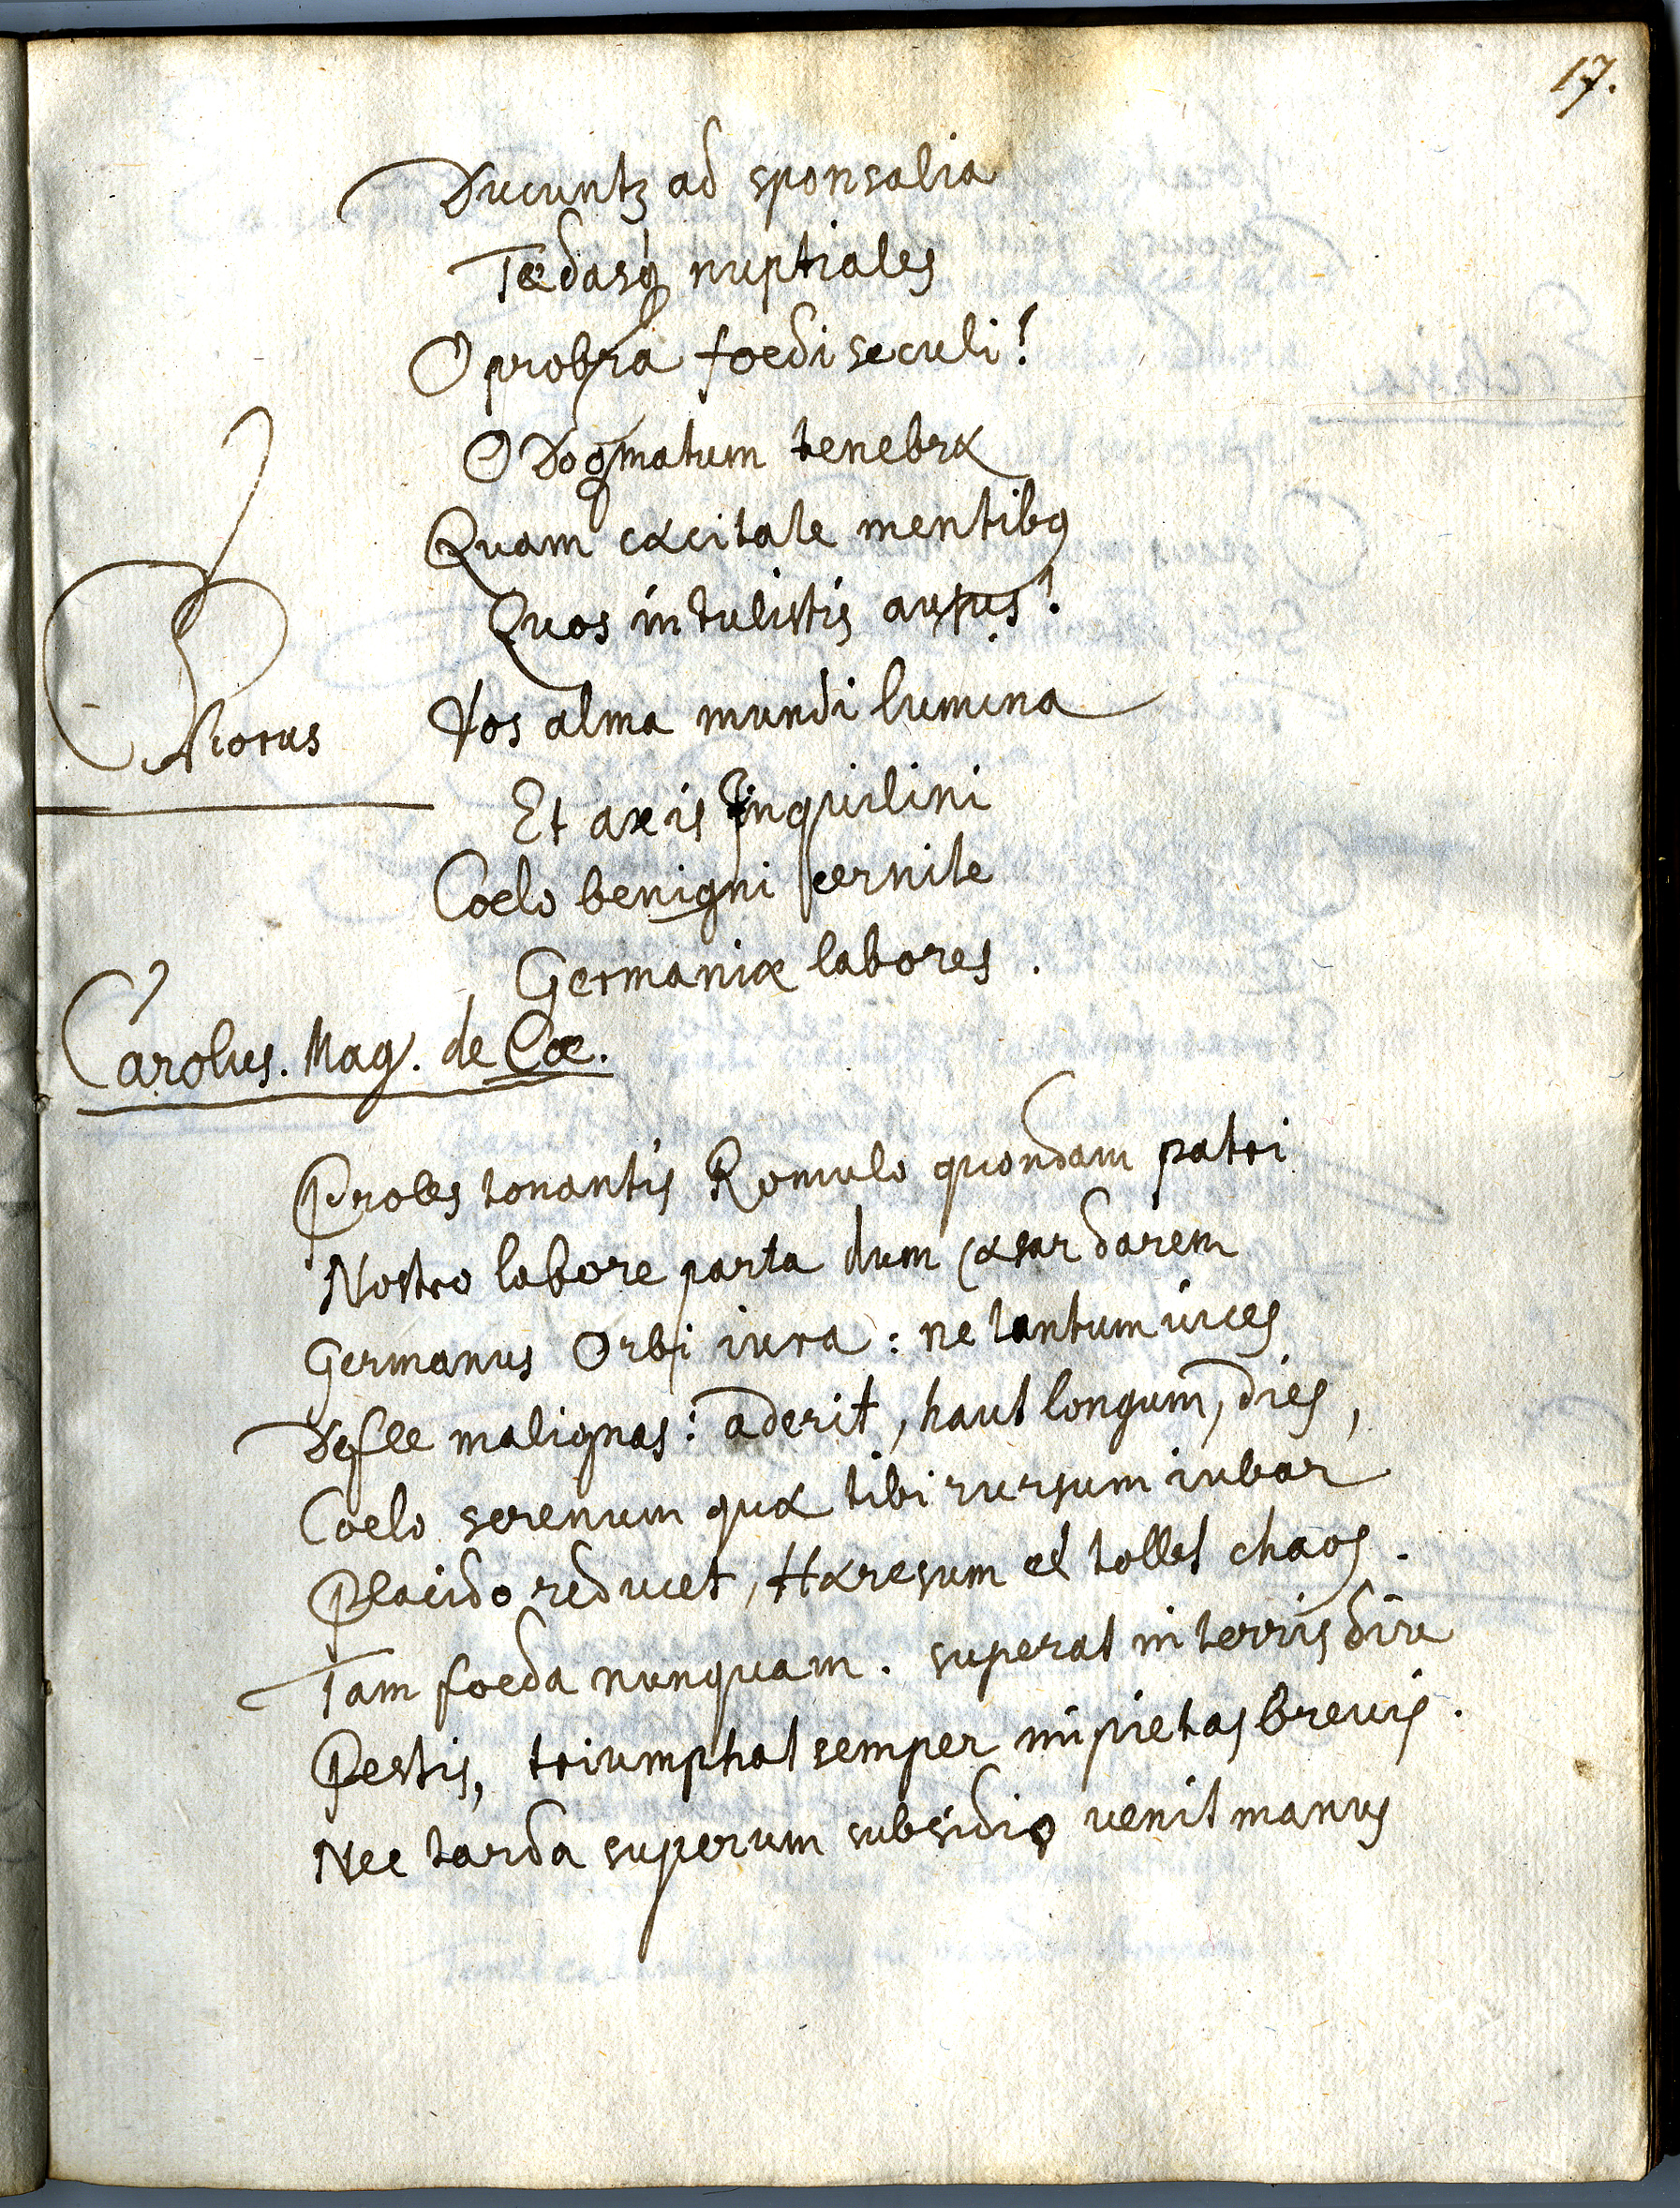 17.
Ducuntꝫ ad sponsalia
Tædasq nuptiales
O probra foedi seculi!
O Dogmatum tenebræ
Quam cæcitate mentibꝰ
Quos intulistis ausus!
Chorus Vos alma mundi lumina
Et axis Inquilini
Coelo benigni cernite
Germaniæ labores.
Carolus. Mag. de Coe.
Proles tonantis Romulo quondam patri
Nostro labore parta dum Cæsar darem
Germanus Orbi iura: ne tantum vices
Defle malignas: aderit, haut longum, dies,
Coelo serenum quæ tibi rursum iubar
Placido reducet, Hæresum et tollet chaos.
Tam foeda nunquam. superat in terris diu
Pestis, triumphat semper impietas brevis.
Nec tarda superum subsidio venit manus